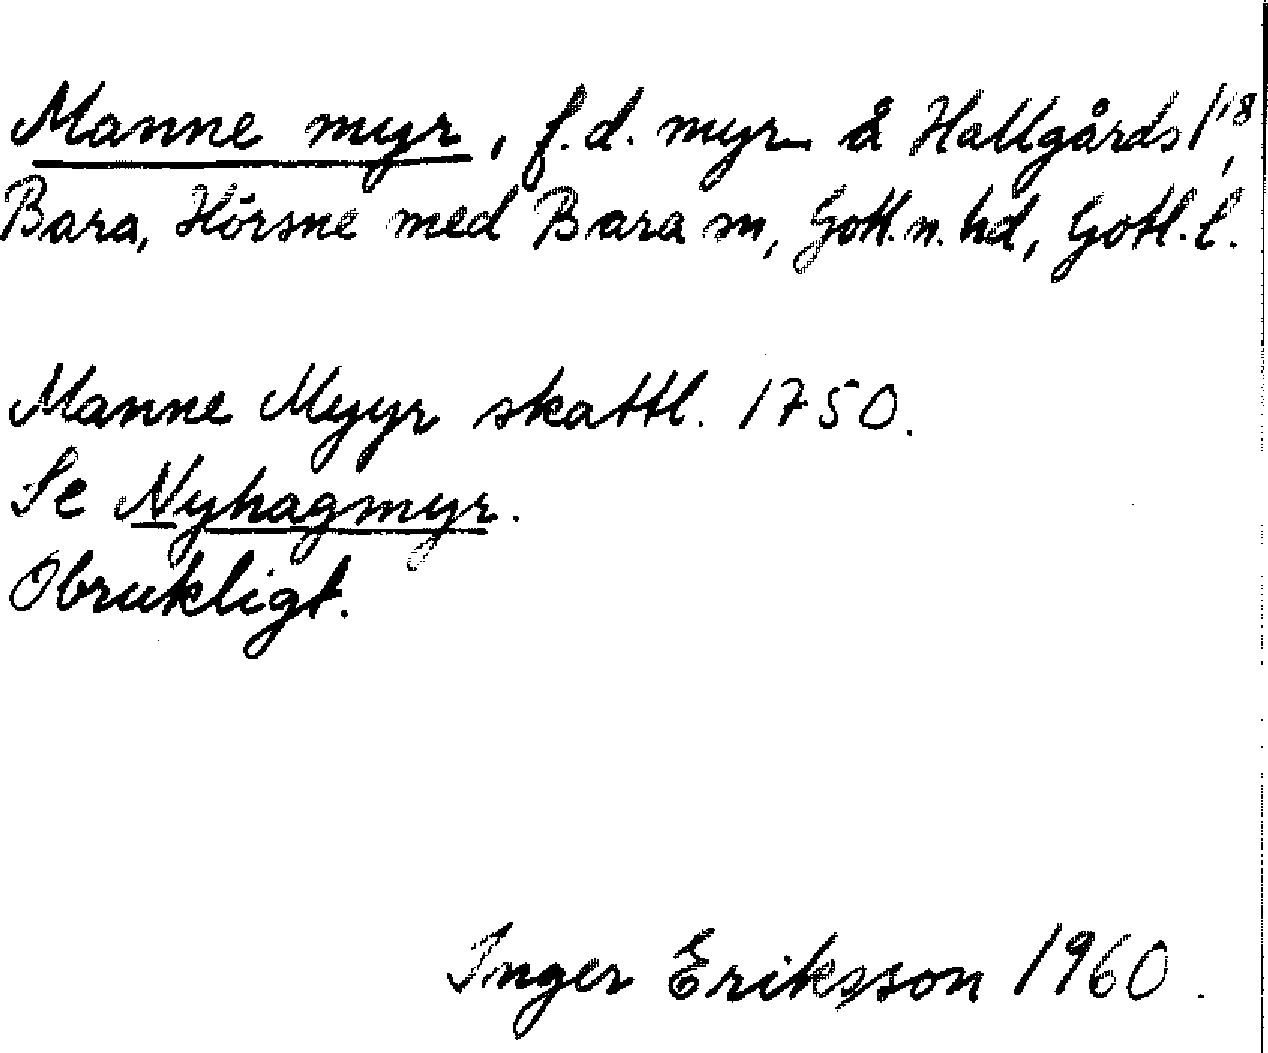 Manne myr, f.d. myr å Hallgårds 1¹⁸,
Bara, Hörsne med Bara sn, Gotl. n. hd, Gotl. l.
Manne Myyr skattl. 1750.
Se Nyhagmyr.
Obrukligt.
Inger Eriksson 1960.